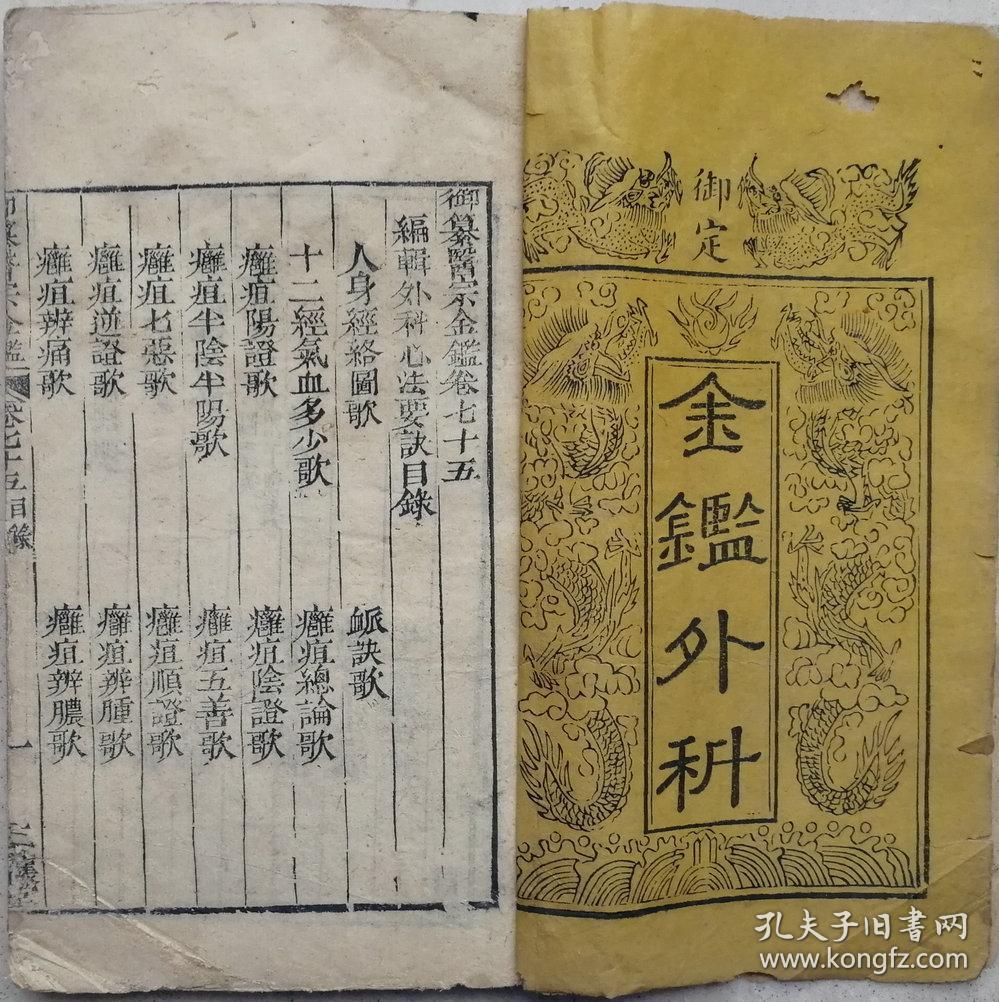 御定
金鑑外科
御纂醫宗金鑑卷七十五
編輯外科心法要訣目錄
人身經絡圖歌 脈訣歌
十二經氣血多少歌 癰疽總論歌
癰疽陽證歌 癰疽陰證歌
癰疽半陰半陽歌 癰疽五善歌
癰疽七惡歌 癰疽順證歌
癰疽逆證歌 癰疽辨腫歌
癰疽辨痛歌 癰疽辨膿歌
卷七十五目錄 一
孔夫子旧书网
www.kongfz.com